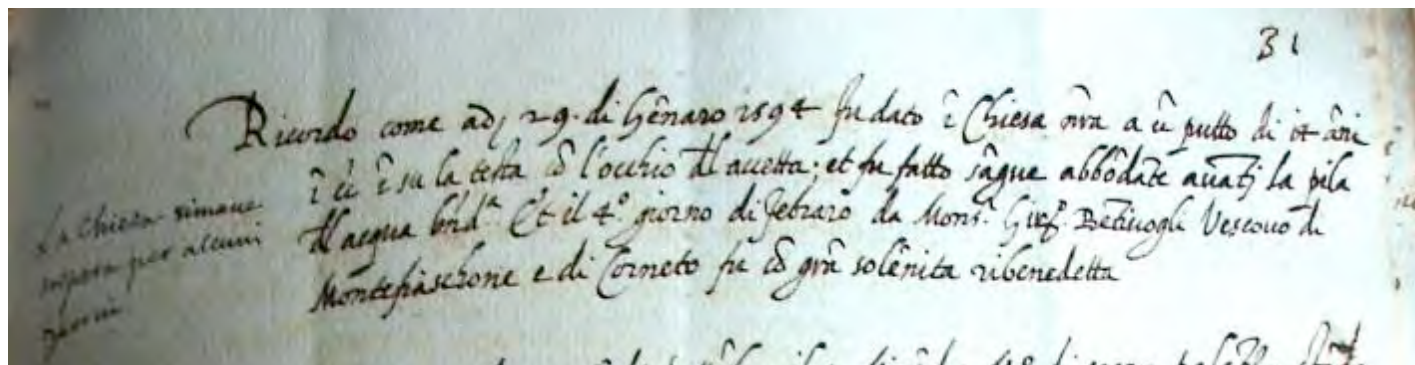 31
Ricordo come adj 29. di Gēnaro 1594 fu dato ī Chiesa n̄ra a ū putto di 14 āni
ī cū ī su la testa cō l'occhio d̄l accetta; et fu fatto sāgue abbōdāte auātj la pila
d̄l acqua bn̄d.ᵃ Et il 4.º giorno di Febraro da Mons.ʳ Bētiuogli Vescouo di
Montefiaschone e di Corneto fu cō grā solēnita ribenedetta
La Chiesa rimane
per alcuni
giorni